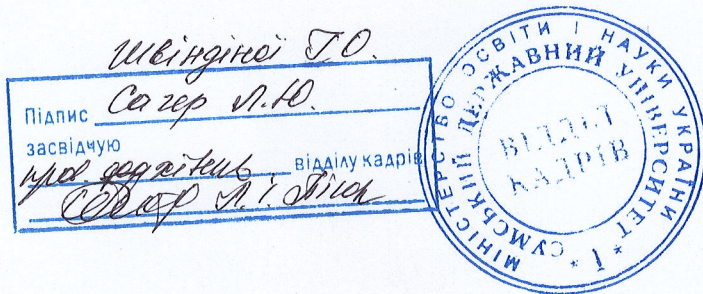 Швіндіної Г.О.
Підпис Сагер Л.Ю.
засвідчую
пров. фахівець відділу кадрів
Л.І.
МІНІСТЕРСТВО ОСВІТИ І НАУКИ УКРАЇНИ
* СУМСЬКИЙ ДЕРЖАВНИЙ УНІВЕРСИТЕТ * 1
ВІДДІЛ
КАДРІВ